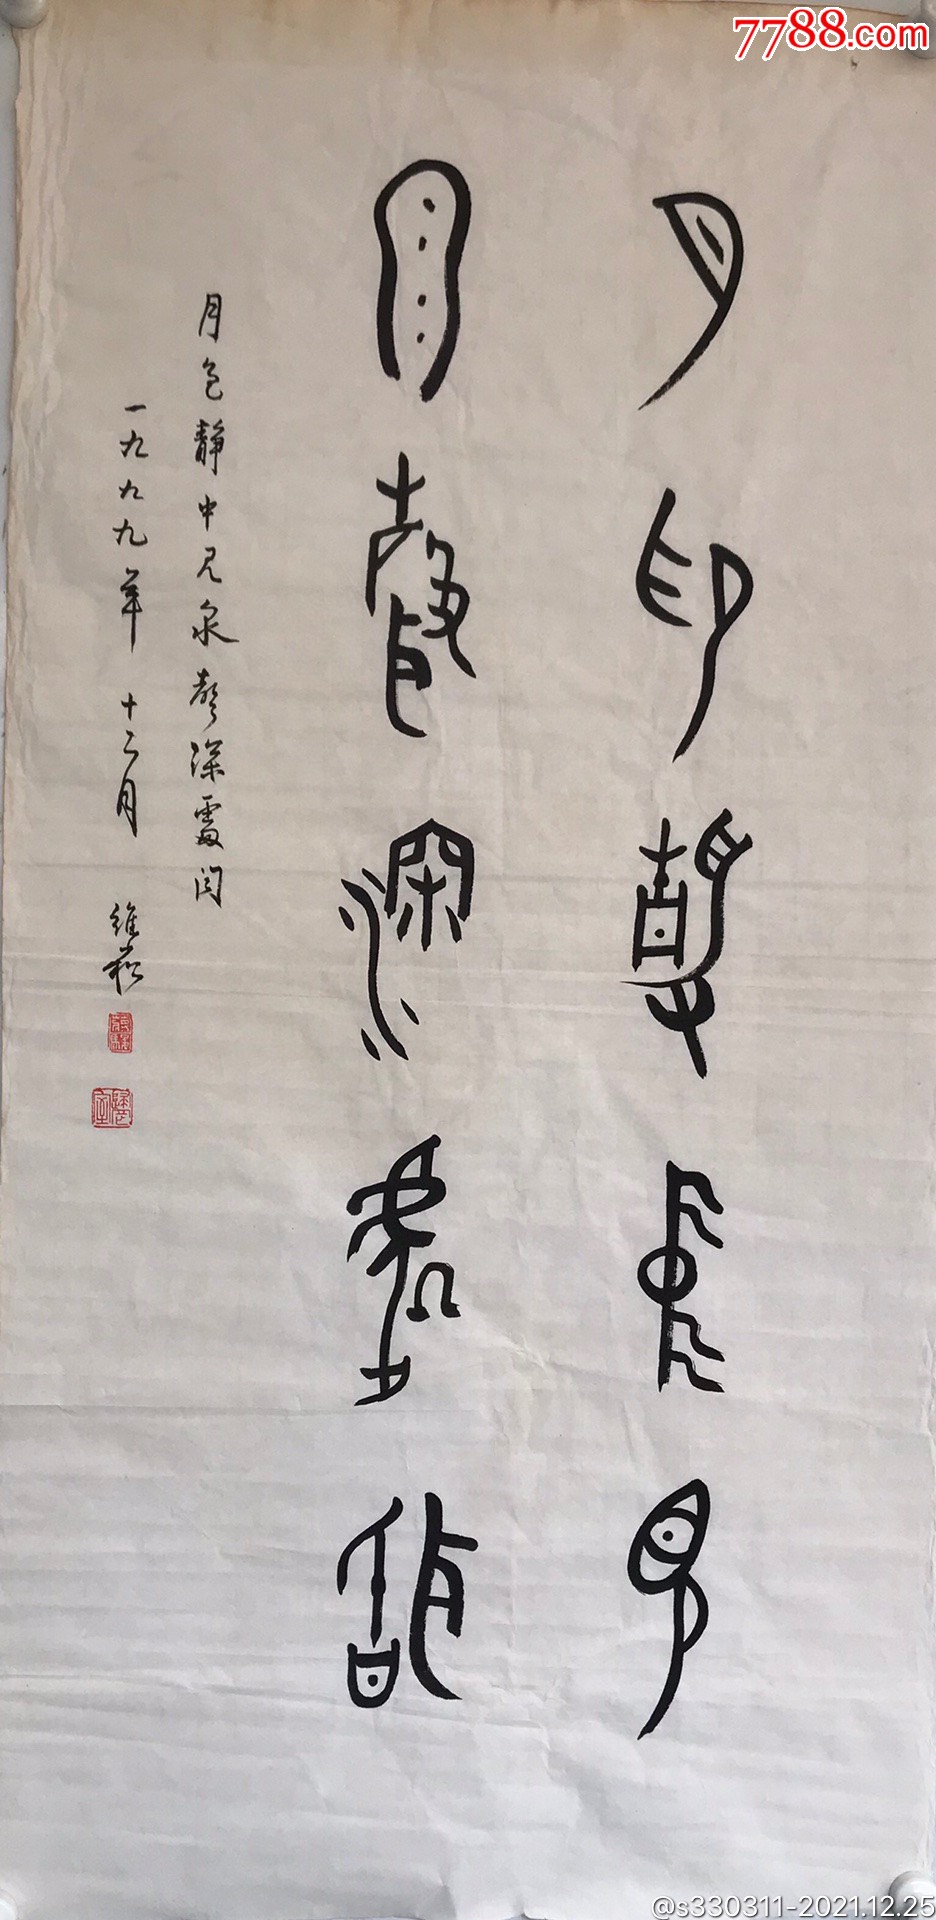 7788.com
月色静中見
泉聲深處聞
月色静中見泉聲深處聞
一九九九年十二月 維崧
@s330311-2021.12.25